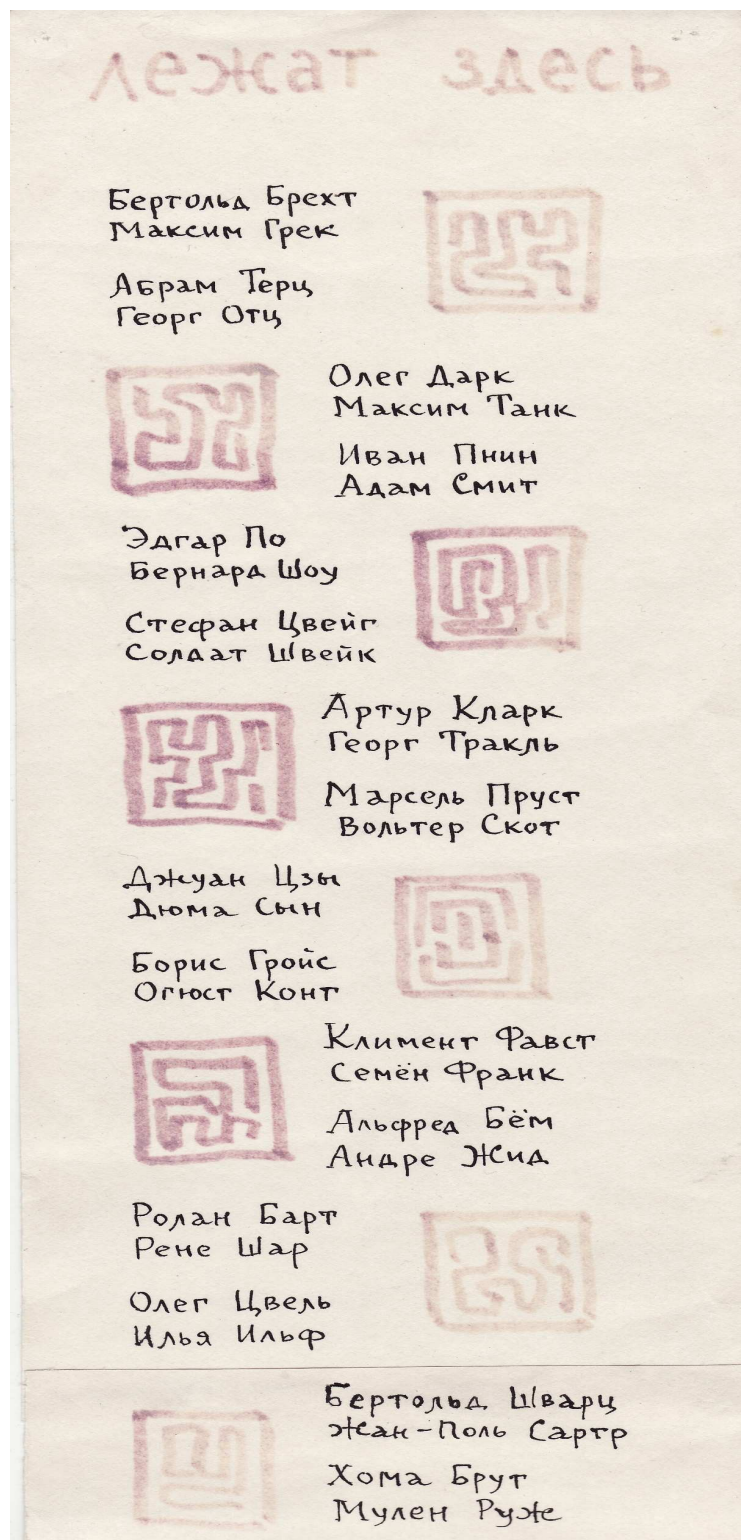 лежат здесь
Бертольд Брехт
Максим Грек
Абрам Терц
Георг Отц
Олег Дарк
Максим Танк
Иван Пнин
Адам Смит
Эдгар По
Бернард Шоу
Стефан Цвейг
Солдат Швейк
Артур Кларк
Георг Тракль
Марсель Пруст
Вольтер Скот
Джуан Цзы
Дюма Сын
Борис Гройс
Огюст Конт
Климент Фавст
Семён Франк
Альфред Бём
Андре Жид
Ролан Барт
Рене Шар
Олег Цвель
Илья Ильф
Бертольд Шварц
Жан-Поль Сартр
Хома Брут
Мулен Руж